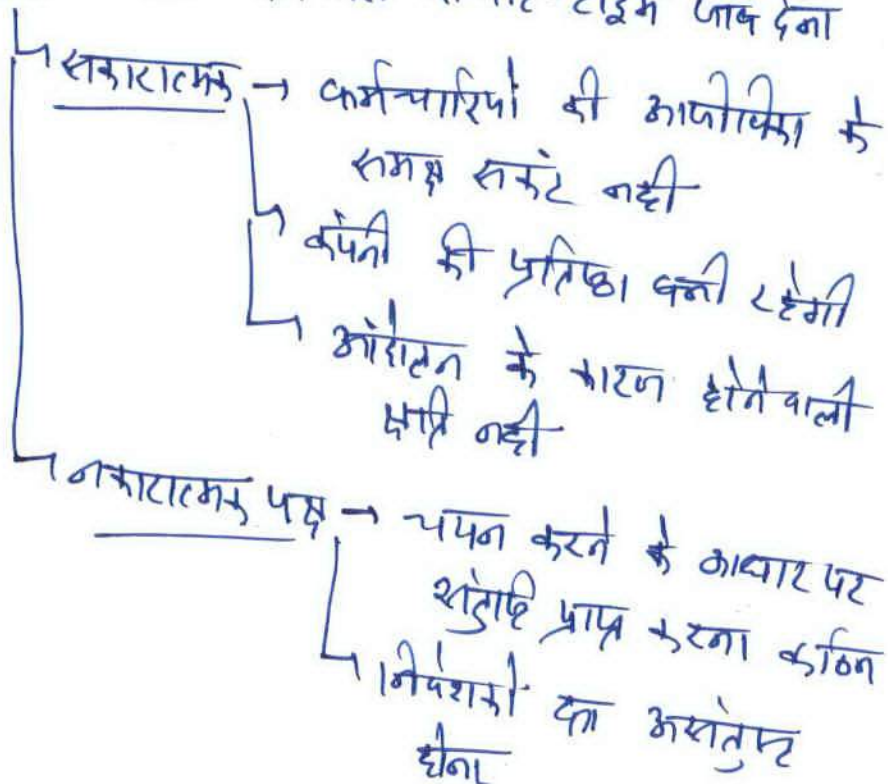 टाइम जाब देना
सकारात्मक → कर्मचारियों की आजीविका के
समक्ष सकंट नही
कंपनी की प्रतिष्ठा बनी रहेगी
आंदोलन के कारण होने वाली
क्षति नही
नकारात्मक पक्ष → चयन करने के आधार पर
संतुष्टि प्राप्त करना कठिन
निवेशकों का असंतुष्ट
होना